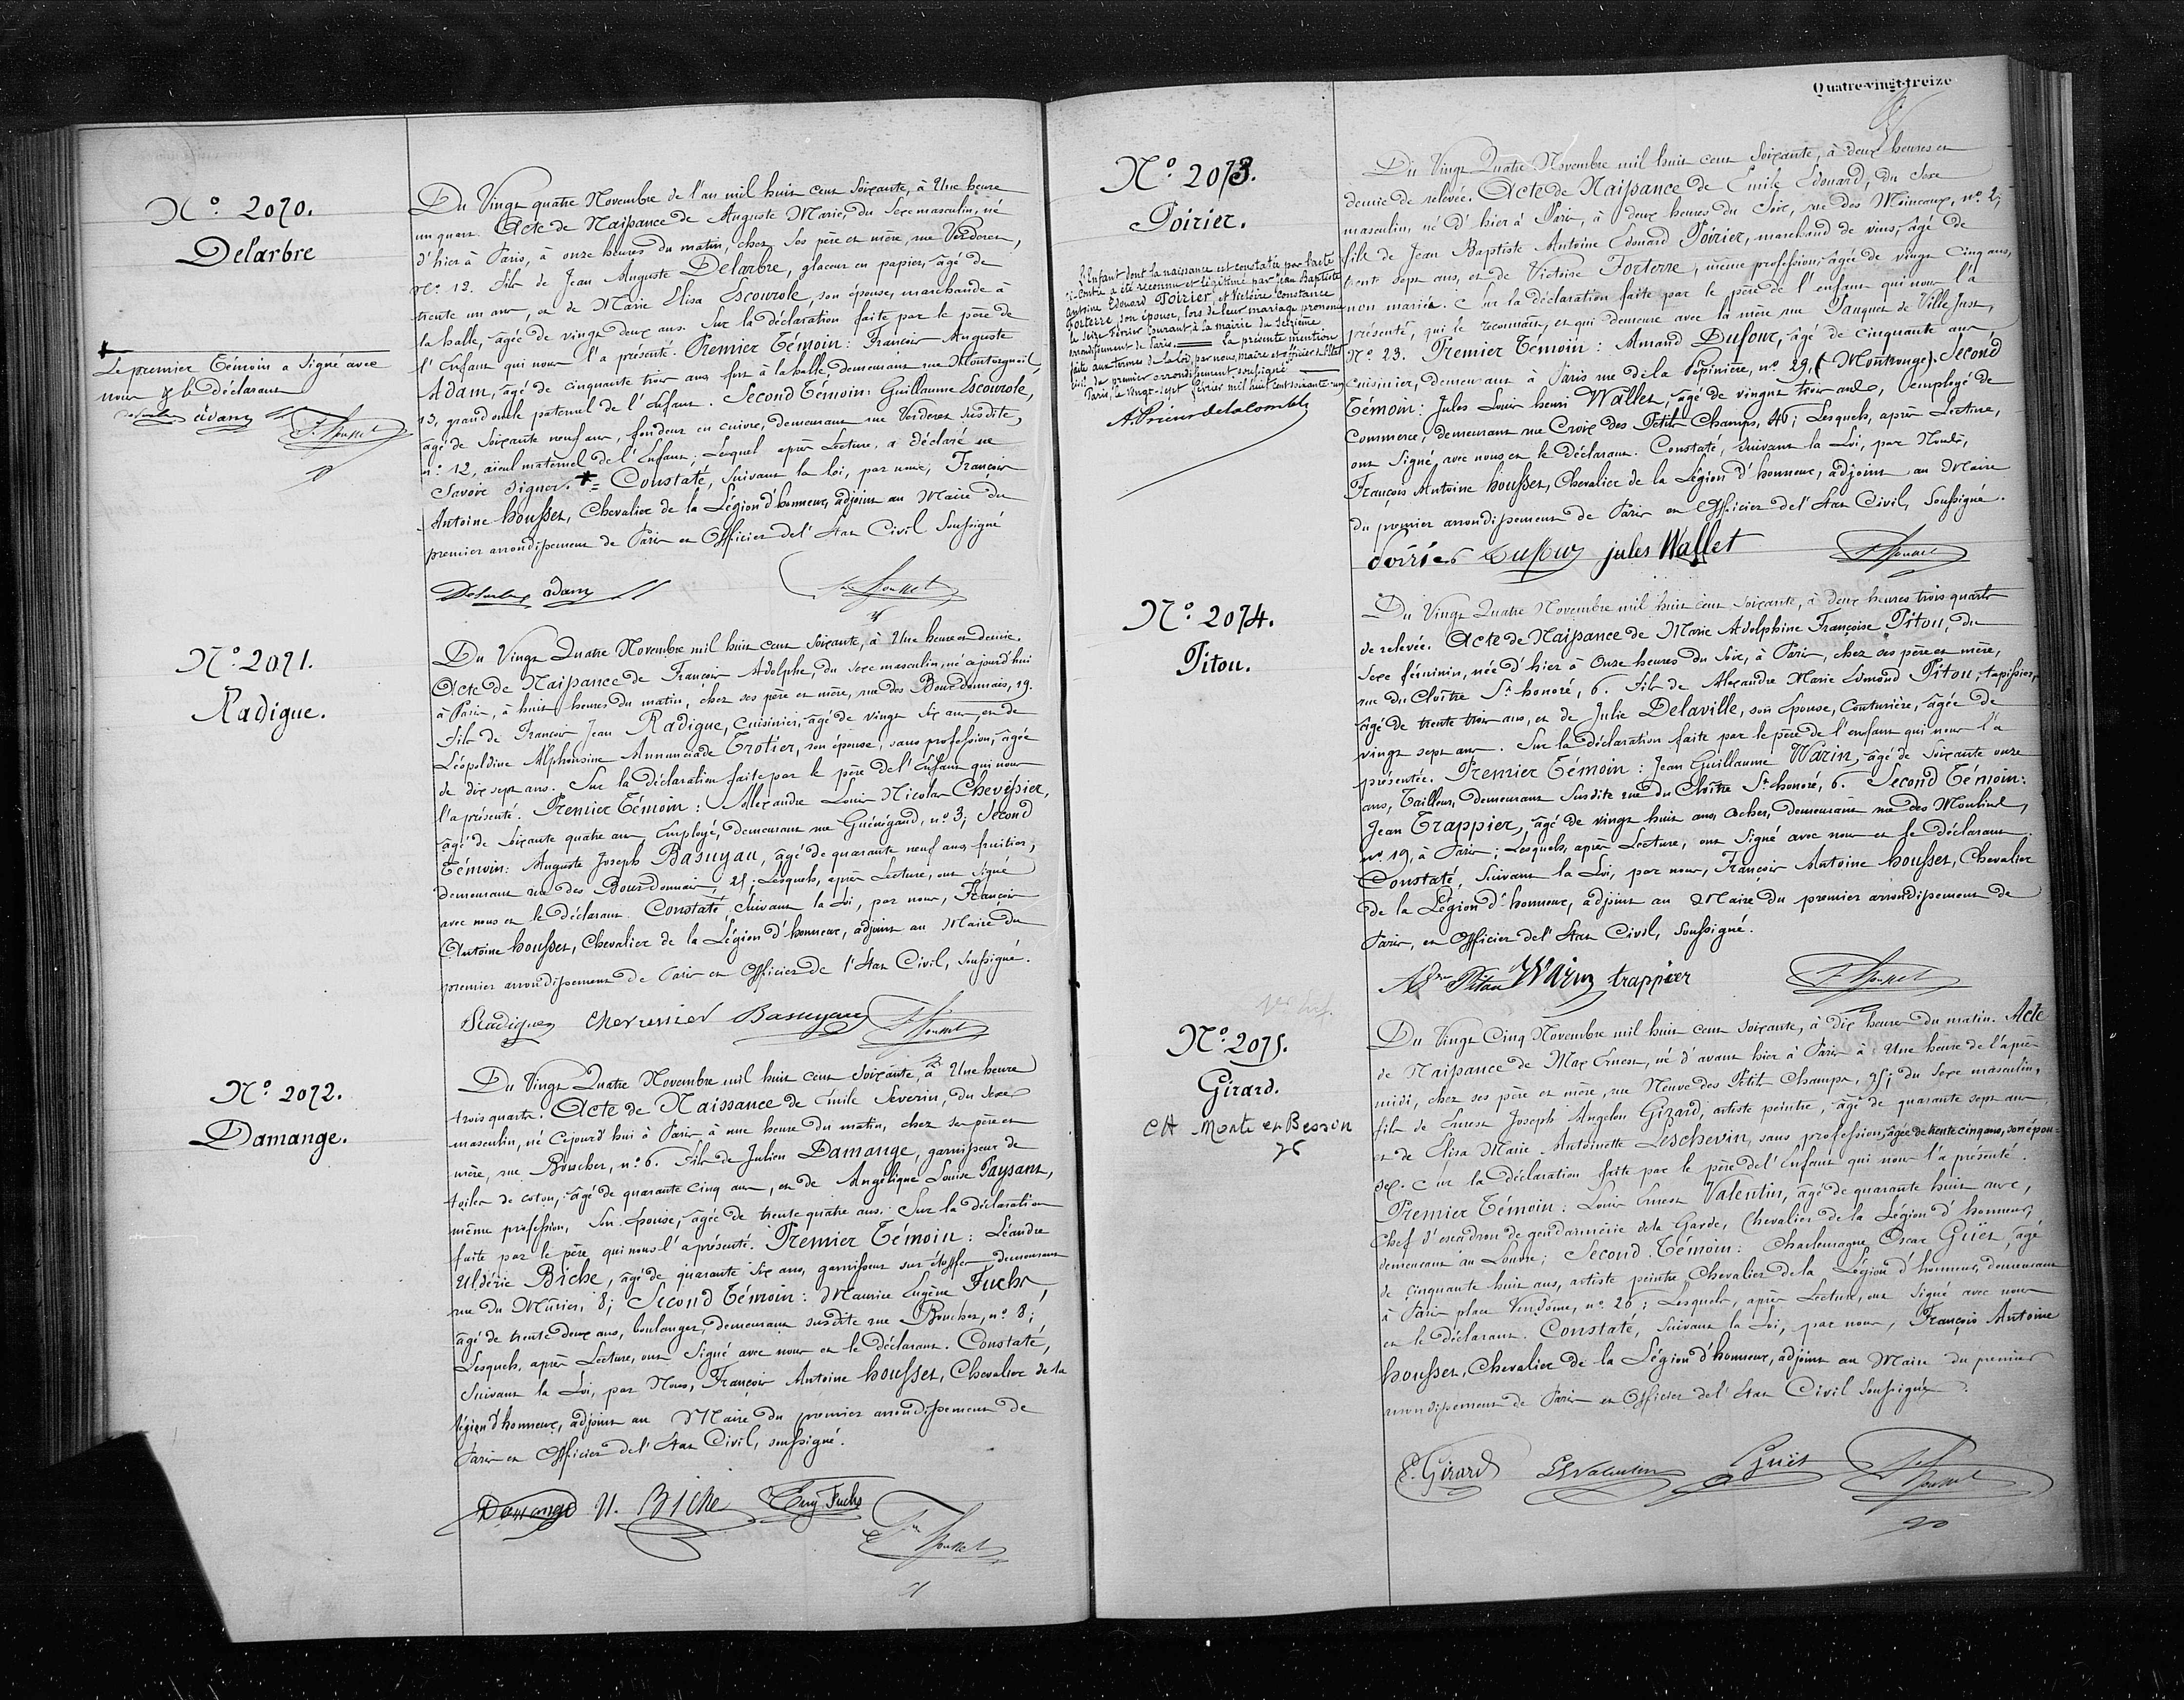 Nº 2070.
Delarbre
Du Vingt quatre Novembre de l'an mil huit cent Soixante, à Une heure
un quart. Acte de Naissance de Auguste Marie, du Sexe masculin, né
d'hier à Paris, à onze heures du matin, chez ses père et mère, rue Verderet,
Nº 12. Fils de Jean Auguste Delarbre, glaceur en papier, âgé de
trente un ans, et de Marie Elisa Escourole, son épouse, marchande à
la halle, âgée de vingt deux ans. Sur la déclaration faite par le père de
l'Enfant qui nous l'a présenté. Premier Témoin: François Auguste
Adam, âgé de cinquante trois ans, fort à la halle, demeurant rue Montorgueil,
13, grand oncle paternel de l'Enfant. Second Témoin: Guillaume Escourole,
âgé de Soixante neuf ans, fondeur en cuivre, demeurant rue Verderet susdite,
nº 12, aïeul maternel de l'Enfant; Lequel après Lecture, a déclaré ne
Savoir Signer. Constaté, Suivant la loi, par nous, François
Antoine housset, Chevalier de la Légion d'honneur, adjoint au Maire du
premier arrondissement de Paris et Officier de l'état Civil Soussigné
Delarbre adam F. Housset
Le premier Témoin a Signé avec
nous & le déclarant
Delarbre adam F. Housset
Nº 2071.
Radigue.
Du Vingt Quatre Novembre mil huit cent Soixante, à Une heure et demie.
Acte de Naissance de François Adolphe, du sexe masculin, né aujourd'hui
à Paris, à huit heures du matin, chez ses père et mère, rue des Bourdonnais, 19.
Fils de François Jean Radigue, Cuisinier, âgé de vingt six ans, et de
Léopoldine Alphonsine Annunciade Trotier, son épouse, sans profession, âgée
de dix sept ans. Sur la déclaration faite par le père de l'Enfant qui nous
l'a présenté. Premier Témoin: Alexandre Louis Nicolas Chevessier,
âgé de soixante quatre ans, Employé, demeurant rue Guénégaud, nº 3; Second
Témoin: Auguste Joseph Basuyau, âgé de quarante neuf ans, fruitier,
demeurant rue des Bourdonnais, 21; Lesquels, après Lecture, ont Signé
avec nous et le déclarant. Constaté, Suivant la Loi, par nous, François
Antoine housset, Chevalier de la Légion d'honneur, adjoint au Maire du
premier arrondissement de Paris et Officier de l'état Civil, soussigné.
Radigue Chevessier Basuyau F. Housset
Nº 2072.
Damange.
Du Vingt Quatre Novembre mil huit cent soixante, à Une heure
trois quarts. Acte de Naissance de Emile Severin, du Sexe
masculin, né cejourd'hui à Paris à une heure du matin, chez ses père et
mère, rue Boucher, nº 6. Fils de Julien Damange, garnisseur de
toiles de coton, âgé de quarante cinq ans, et de Angélique Louise Paysant,
même profession, Son épouse, âgée de trente quatre ans. Sur la déclaration
faite par le père qui nous l'a présenté. Premier Témoin: Léandre
Uldéric Biche, âgé de quarante six ans, garnisseur sur étoffes demeurant
rue du Mûrier, 8; Second Témoin: Maurice Eugène Fuchs,
âgé de trente deux ans, boulanger, demeurant susdite rue Boucher, nº 8;
Lesquels, après Lecture, ont Signé avec nous et le déclarant. Constaté,
Suivant la Loi, par Nous, François Antoine housset, Chevalier de la
légion d'honneur, adjoint au Maire du premier arrondissement de
Paris et Officier de l'état Civil, soussigné.
Damange U. Biche Eug. Fuchs F. Housset
Quatre-vingt-treize
Nº 2073.
Poirier.
L'Enfant dont la naissance est constatée par l'acte
ci-contre a été reconnu et légitimé par Jean Baptiste
Antoine Edouard Poirier et Victoire Constance
Forterre, son épouse, lors de leur mariage prononcé
le seize Février Courant à la mairie du seizième
arrondissement de Paris. La présente mention
faite aux termes de la loi, par nous, Maire et officier de l'Etat
Civil du premier arrondissement soussigné
Paris, le vingt-sept février mil huit cent soixante-un
Du Vingt Quatre Novembre mil huit cent Soixante, à deux heures et
demie de relevée. Acte de Naissance de Emile Edouard, du Sexe
masculin, né d'hier à Paris, à deux heures du Soir, rue des Moineaux, nº 2,
fils de Jean Baptiste Antoine Edouard Poirier, marchand de vins, âgé de
trente sept ans, et de Victoire Forterre, même profession, âgée de vingt cinq ans,
non mariés. Sur la déclaration faite par le père de l'enfant qui nous l'a
présenté, qui le reconnaît, et qui demeure avec la mère rue Sauques de Ville Just,
nº 23. Premier Témoin: Amand Dufour, âgé de cinquante ans,
cuisinier, demeurant à Paris rue de la Pépinière, nº 29, (Montrouge). Second
Témoin: Jules Louis henri Wallet, âgé de vingt trois ans, employé de
Commerce, demeurant rue Croix des Petits Champs, 40; Lesquels, après Lecture,
ont Signé, avec nous et le déclarant. Constaté, Suivant la Loi, par Nous,
François Antoine housset, Chevalier de la Légion d'honneur, adjoint au Maire
du premier arrondissement de Paris et Officier de l'état Civil, Soussigné.
Poirier Dufour jules Wallet F. Housset
Nº 2074.
Pitou.
Du Vingt Quatre Novembre mil huit cent soixante, à deux heures trois quarts
de relevée. Acte de Naissance de Marie Adolphine Françoise Pitou, du
Sexe féminin, née d'hier à Onze heures du Soir, à Paris, chez ses père et mère,
rue du Cloître St honoré, 6. Fils de Alexandre Marie Edmond Pitou, tapissier,
âgé de trente trois ans, et de Julie Delaville, son épouse, Couturière, âgée de
vingt sept ans. Sur la déclaration faite par le père de l'enfant qui nous l'a
présentée. Premier Témoin: Jean Guillaume Warin, âgé de soixante onze
ans, Tailleur, demeurant susdite rue du Cloître St honoré, 6. Second Témoin:
Jean Trappier, âgé de vingt huit ans, cocher, demeurant rue des Moulins,
nº 19, à Paris; Lesquels, après Lecture, ont Signé avec nous et le déclarant.
Constaté, Suivant la Loi, par nous, François Antoine housset, Chevalier
de la Légion d'honneur, adjoint au Maire du premier arrondissement de
Paris, et Officier de l'état Civil, soussigné.
Pitou Warin trappier F. Housset
Nº 2075.
Girard.
Du Vingt Cinq Novembre mil huit cent soixante, à dix heures du matin. Acte
de Naissance de Max Ernest, né d'avant hier à Paris à Une heure de l'après
midi, chez ses père et mère, rue Neuve des Petits Champs, 95; du Sexe masculin,
fils de Ernest Joseph Angelon Girard, artiste peintre, âgé de quarante sept ans
et de Elisa Marie Antoinette Leschevin, sans profession, âgée de trente cinq ans, son épou-
se. Sur la déclaration faite par le père de l'Enfant qui nous l'a présenté.
Premier Témoin: Louis Ernest Valentin, âgé de quarante huit ans,
Chef d'escadron de gendarmerie de la Garde, Chevalier de la Légion d'honneur,
demeurant au Louvre; Second Témoin: Charlemagne Oscar Guet, âgé
de cinquante huit ans, artiste peintre, Chevalier de la Légion d'honneur, demeurant
à Paris place Vendôme, nº 26; Lesquels, après Lecture, ont Signé avec nous
et le déclarant. Constaté, Suivant la Loi, par nous, François Antoine
housset, Chevalier de la Légion d'honneur, adjoint au Maire du premier
arrondissement de Paris et Officier de l'état Civil soussigné.
E. Girard Valentin Guet F. Housset